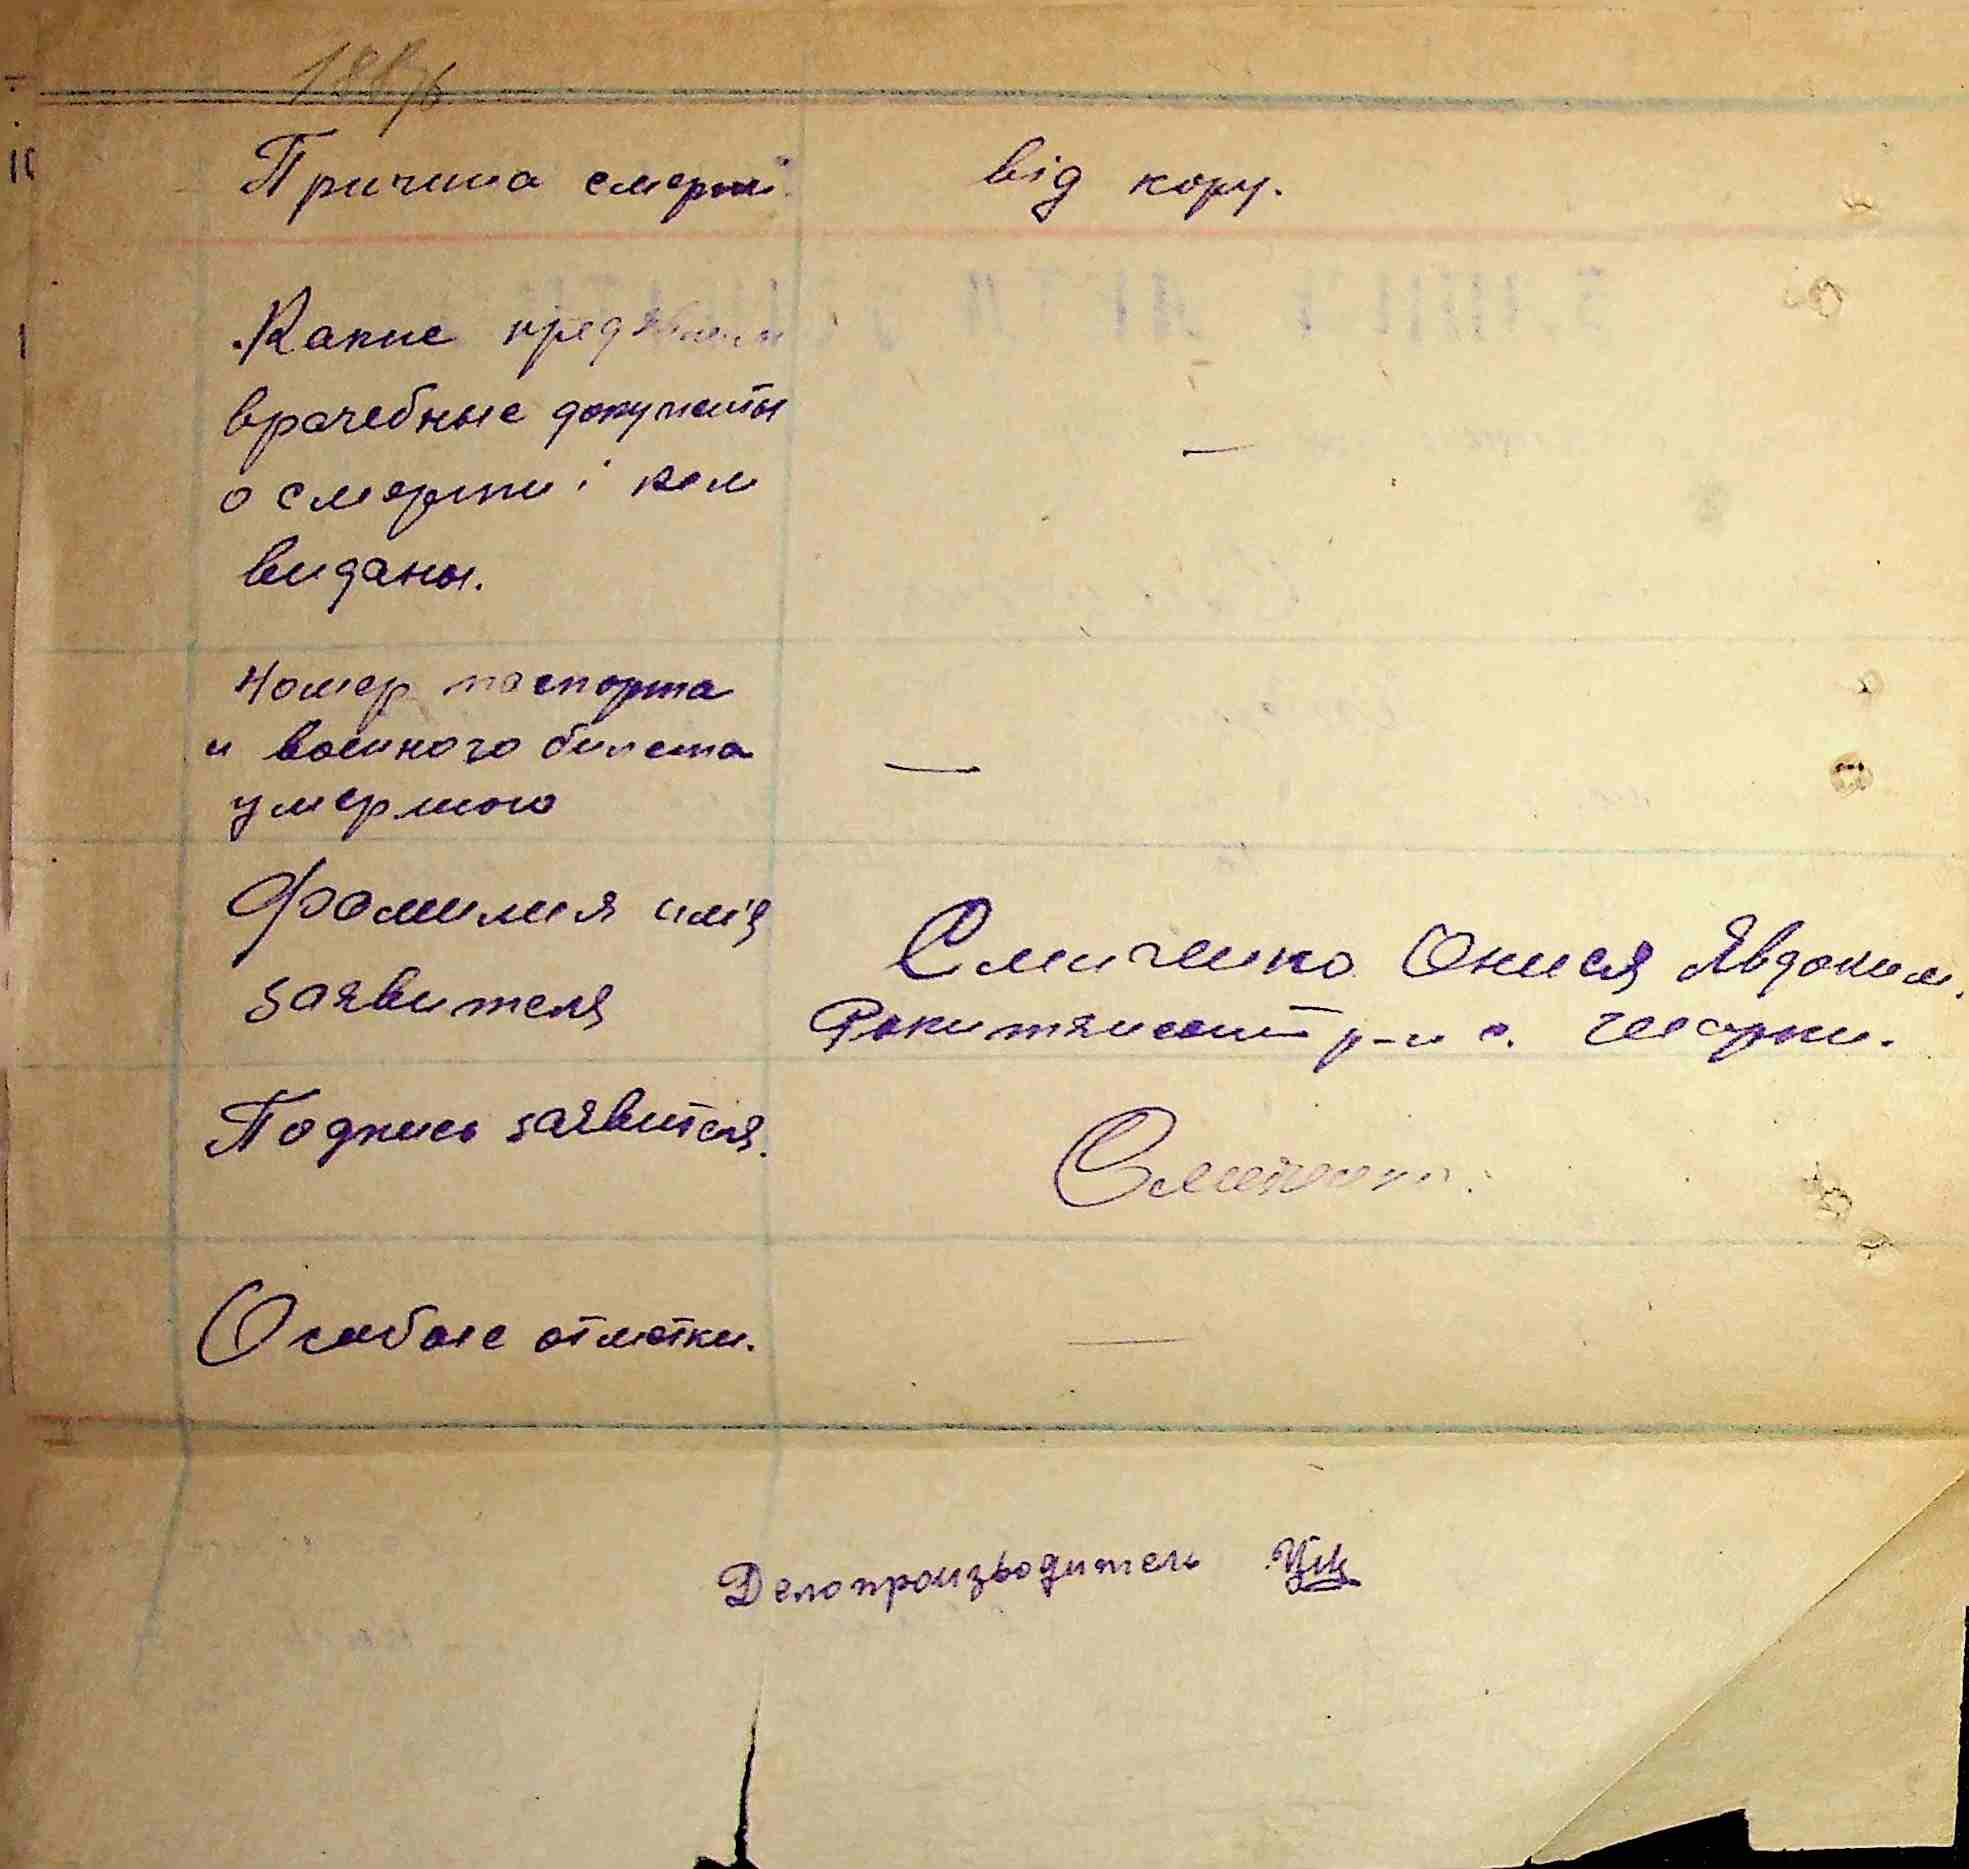 Причина смерті від кору.
Какие предявлен
врачебные документы
о смерти і кем
виданы.
Номер паспорта
и военного билета
умершого
Фамилия имія
заявителя
Смиченко Онися Явдоким.
Рокитянский р-н с. Шарки.
Подпись заявителя.
Особые отметки.
Делопроизводитель